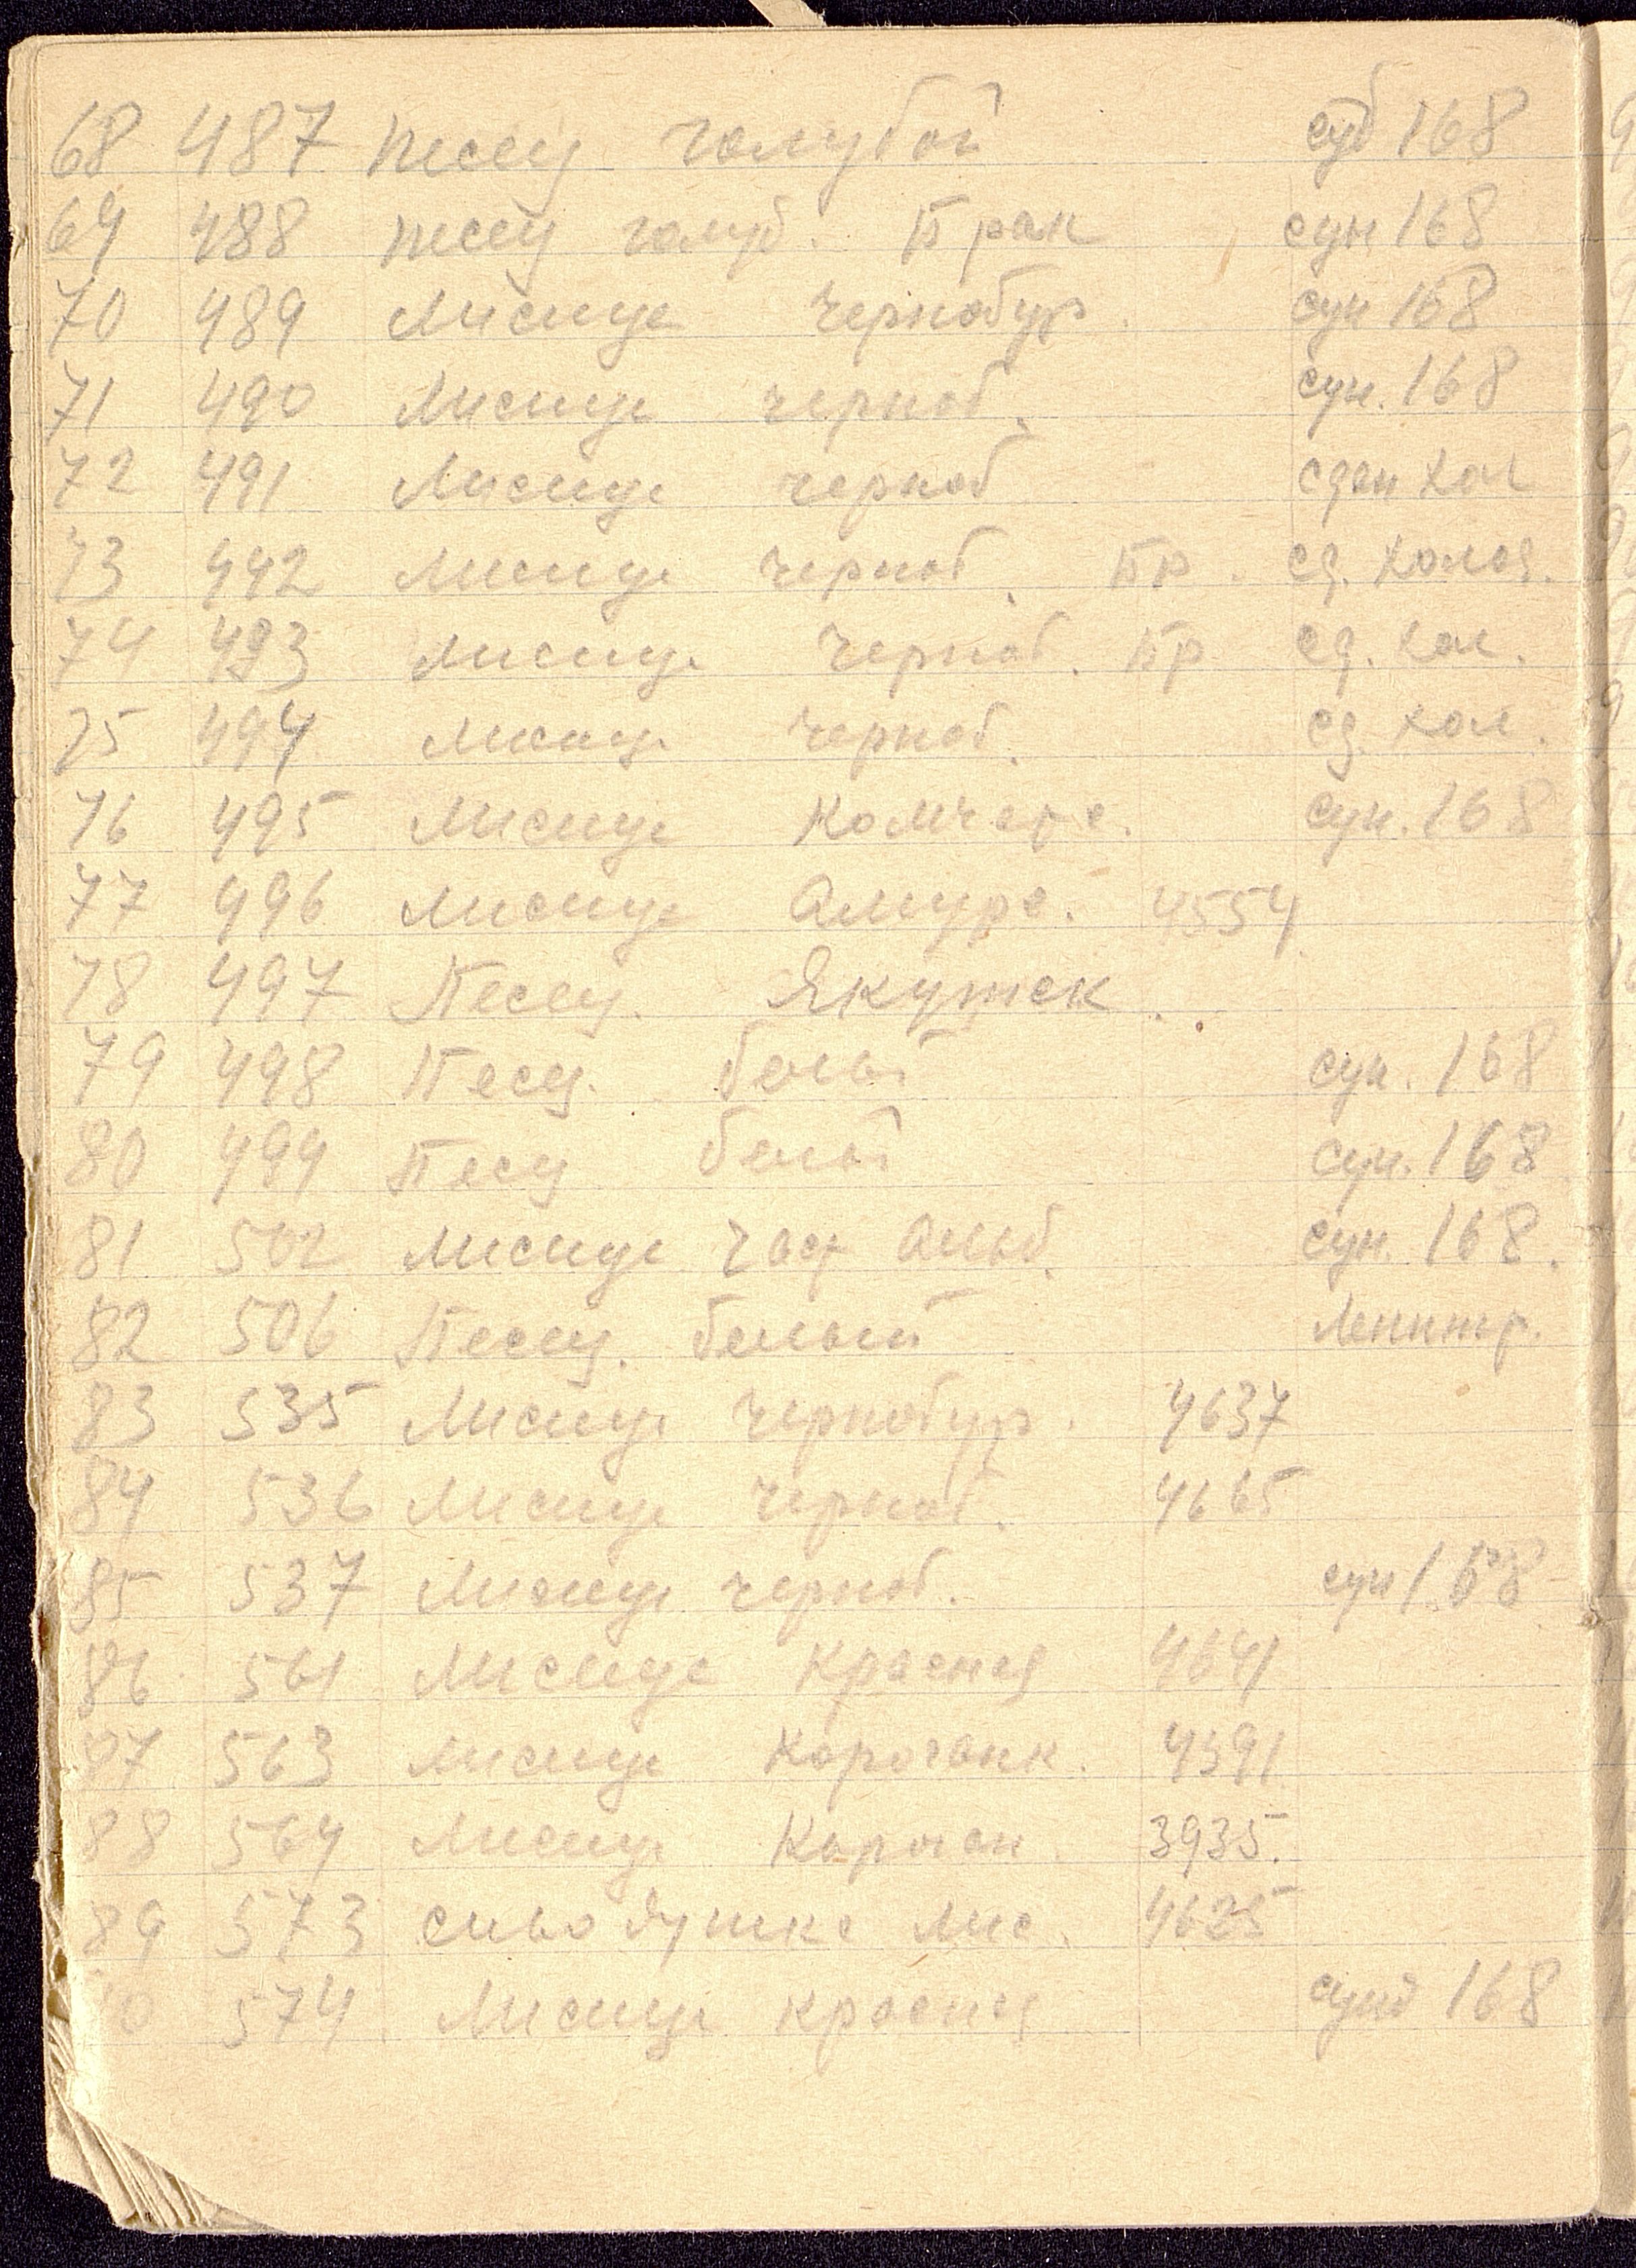 68 487 песец голубой суд 168
69 488 песец голуб. брак сун 168
70 489 Лисица чернобур. сун 168
71 490 Лисица черноб. сун. 168
72 491 Лисица черноб сдан хол
73 492 Лисица черноб. бр. сд. холод.
74 493 Лисица черноб. бр сд. хол.
75 494 Лисица черноб. сд. хол.
76 495 Лисица Камчатс. сун. 168
77 496 Лисица Амурс. 4554
78 497 Песец. Якутск.
79 498 Песец. белый сун. 168
80 499 Песец белый сун. 168
81 502 Лисица част Альб. сун. 168.
82 506 Песец. белый Ленингр.
83 535 Лисица чернобур. 4637
84 536 Лисица черноб. 4665
85 537 Лисица черноб. сун 168
86 561 Лисица красная 4641
87 563 Лисица Караганк. 4391
88 564 Лисица Караган. 3935.
89 573 сиводушка лис. 4625
574 Лисица красная 168